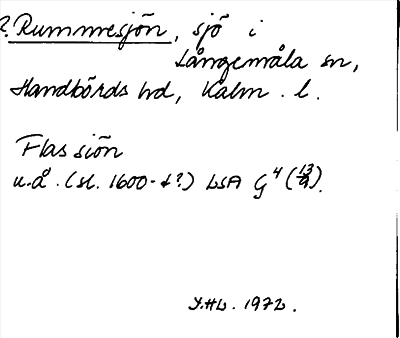 ?. Rummesjön, sjö i
Långemåla sn,
Handbörds hd, Kalm. l.
Flassiön
u.å. (sl. 1600-t?) LSA G4 (13/9).
Y.HL. 1972.